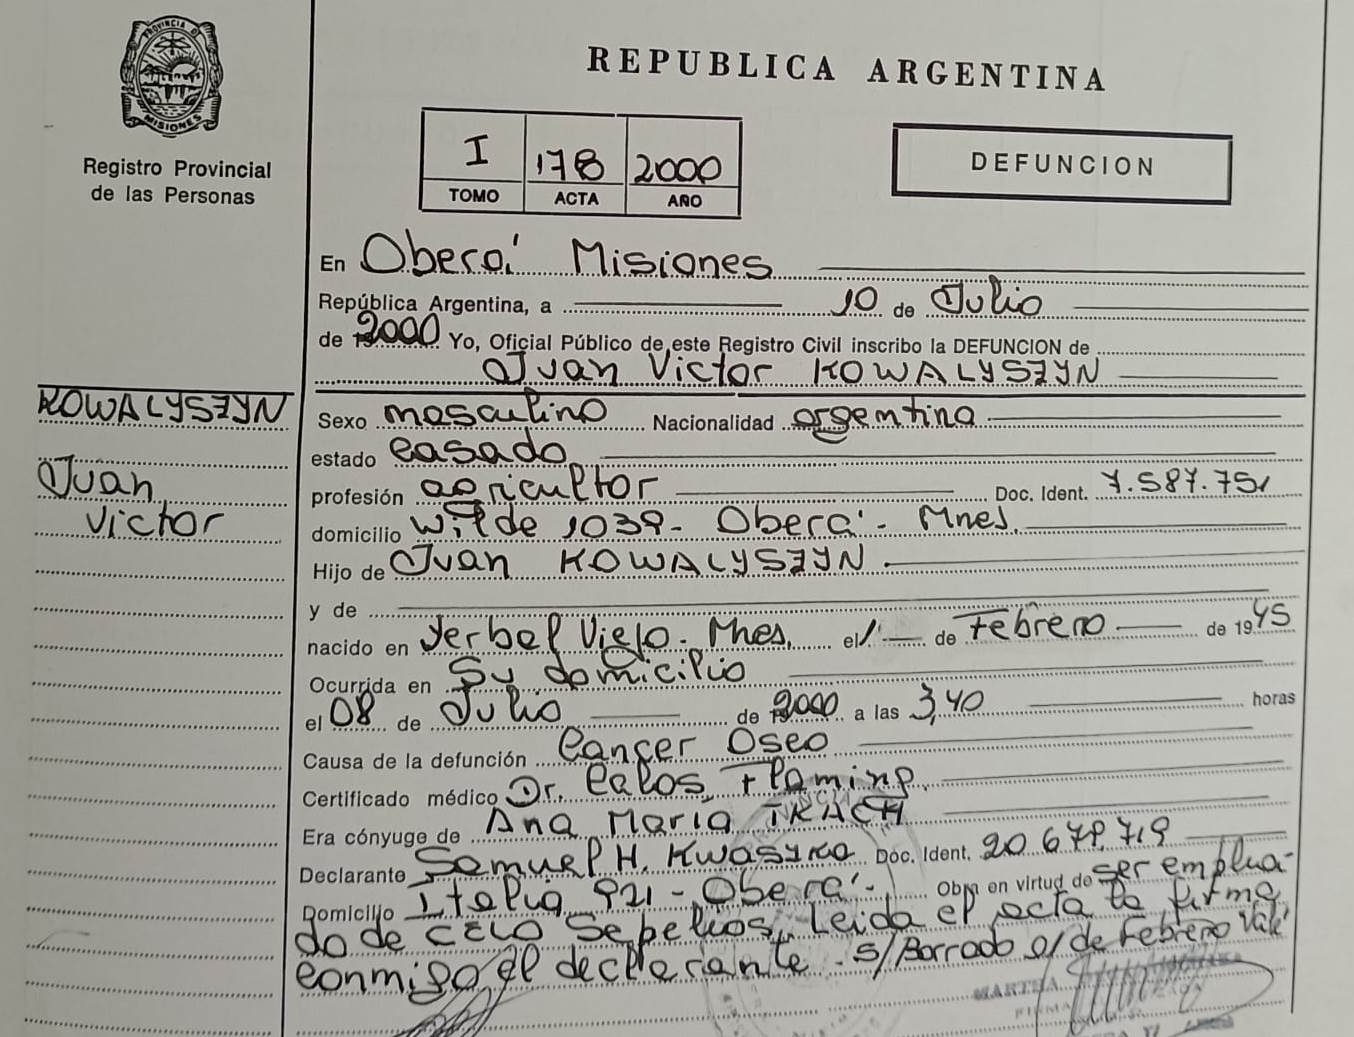 PROVINCIA DE
MISIONES
Registro Provincial
de las Personas
REPUBLICA ARGENTINA
I 178 2000
TOMO ACTA AÑO
DEFUNCION
En Oberá Misiones
República Argentina, a 10 de Julio
de 2000 Yo, Oficial Público de este Registro Civil inscribo la DEFUNCION de
Juan Victor KOWALYSZYN
KOWALYSZYN
Juan
Victor
Sexo masculino Nacionalidad argentina
estado casado
profesión agricultor Doc. Ident. 7.587.751
domicilio Wilde 1039 - Oberá - Mnes.
Hijo de Juan KOWALYSZYN
y de
nacido en Yerbal Viejo. Mnes. el 1 de Febrero de 1945
Ocurrida en Su domicilio
el 08 de Julio de 2000 a las 3,40 horas
Causa de la defunción Cancer Oseo
Certificado médico Dr.
Era cónyuge de Ana Maria TKACH
Declarante Samuel H. Doc. Ident.
Domicilio Italia 921 - Oberá - Obra en virtud de ser emplea-
do de CELO Sepelios. Leida el acta la firma
conmigo el declarante. S/Borrado 01 de Febrero Vale
MARTHA